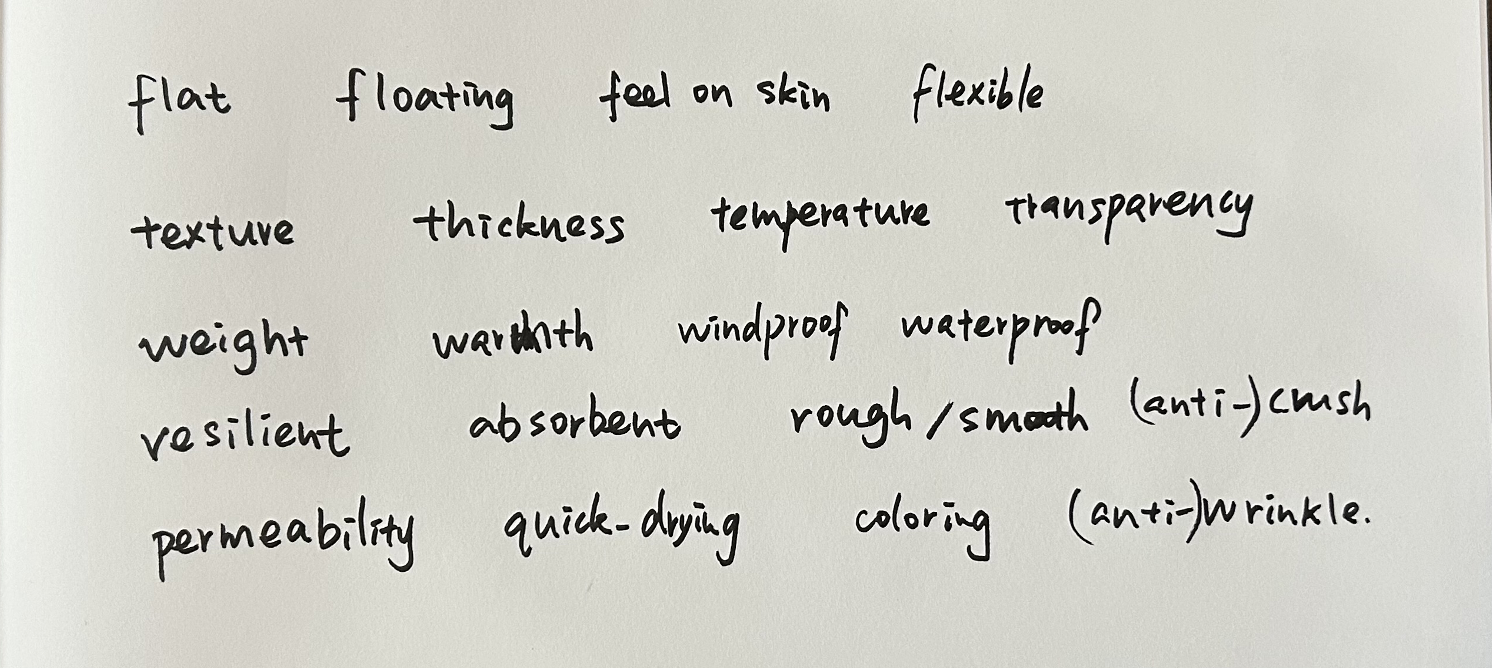 flat floating feel on skin flexible
texture thickness temperature transparency
weight warmth windproof waterproof
resilient absorbent rough/smooth (anti-)crush
permeability quick-drying coloring (anti-)wrinkle.